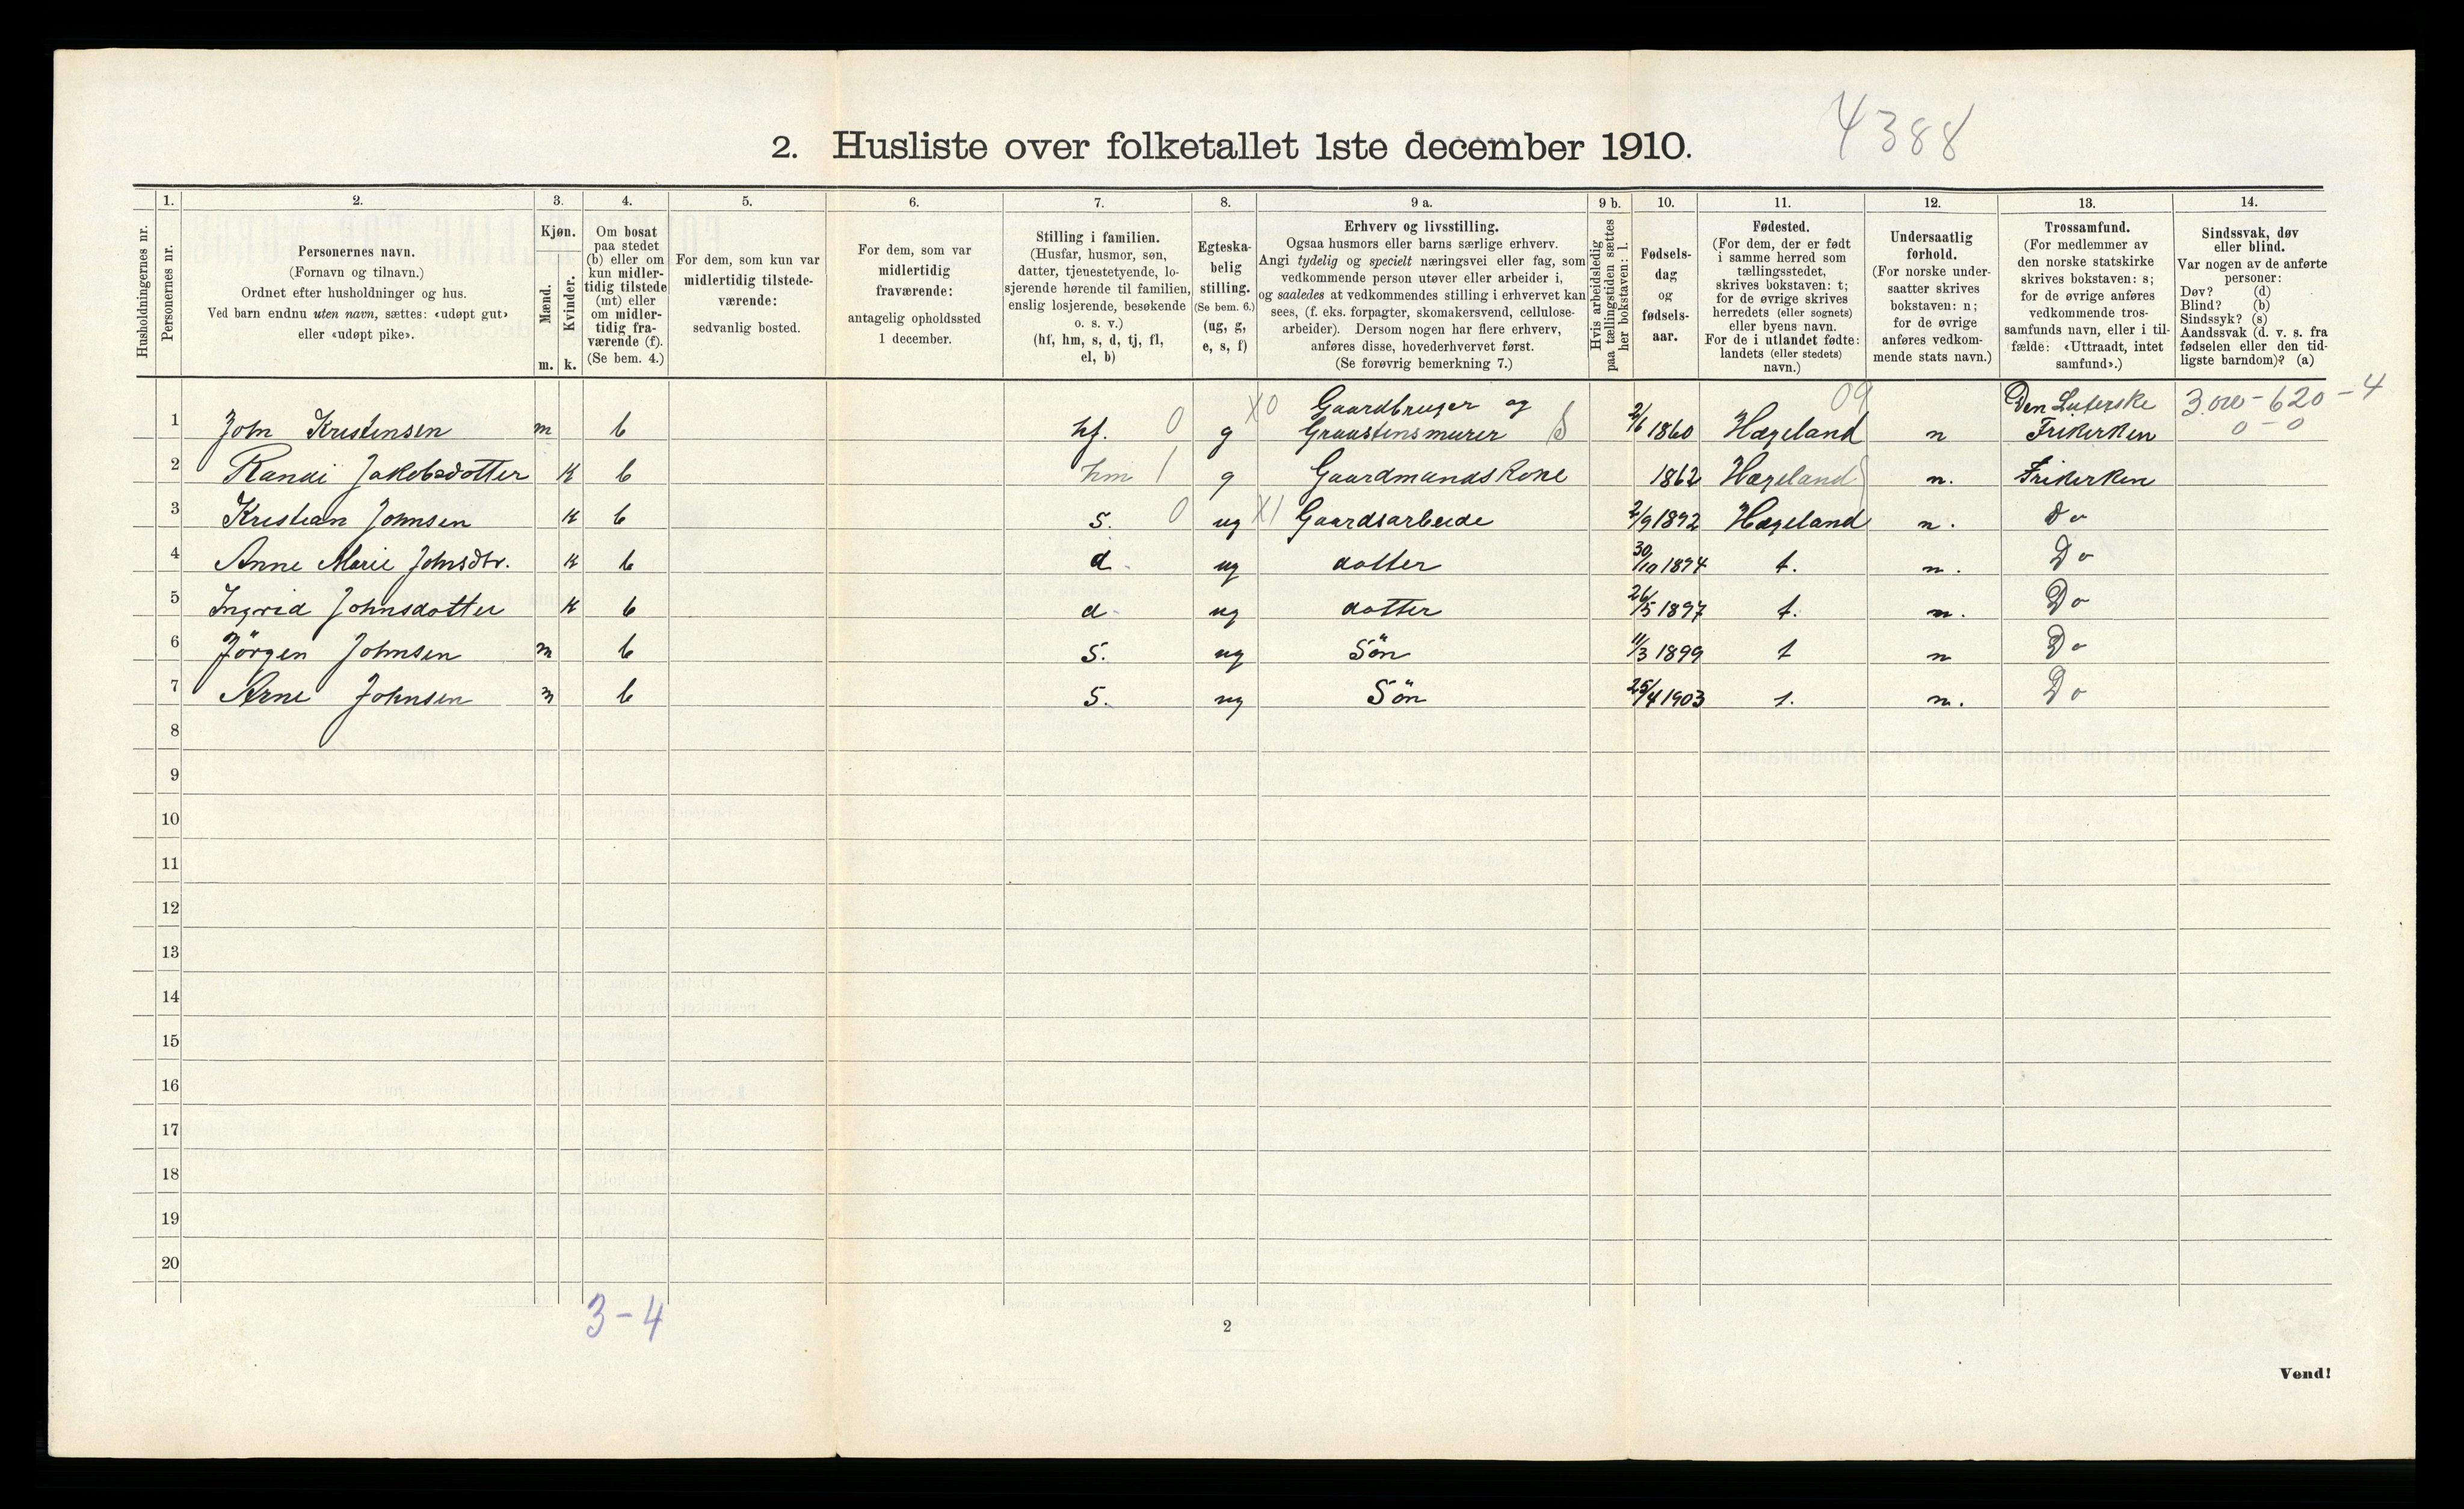 4388
2. Husliste over folketallet 1ste december 1910.
Husholdningernes nr.
1. Personernes nr.
2.
Personernes navn.
(Fornavn og tilnavn.)
Ordnet efter husholdninger og hus.
Ved barn endnu uten navn, sættes: «udøpt gut»
eller «udøpt pike».
3.
Kjøn.
Mænd.
Kvinder.
m. k.
4.
Om bosat
paa stedet
(b) eller om
kun midler-
tidig tilstede
(mt) eller
om midler-
tidig fra-
værende (f).
(Se bem. 4.)
5.
For dem, som kun var
midlertidig tilstede-
værende:
sedvanlig bosted.
6.
For dem, som var
midlertidig
fraværende:
antagelig opholdssted
1 december.
7.
Stilling i familien.
(Husfar, husmor, søn,
datter, tjenestetyende, lo-
sjerende hørende til familien,
enslig losjerende, besøkende
o. s. v.)
(hf, hm, s, d, tj, fl,
el, b)
8.
Egteska-
belig
stilling.
(Se bem. 6.)
(ug, g,
e, s, f)
9 a.
Erhverv og livsstilling.
Ogsaa husmors eller barns særlige erhverv.
Angi tydelig og specielt næringsvei eller fag, som
vedkommende person utøver eller arbeider i,
og saaledes at vedkommendes stilling i erhvervet kan
sees, (f. eks. forpagter, skomakersvend, cellulose-
arbeider). Dersom nogen har flere erhverv,
anføres disse, hovederhvervet først.
(Se forøvrig bemerkning 7.)
9 b.
Hvis arbeidsledig
paa tællingstiden sættes
her bokstaven: l.
10.
Fødsels-
dag
og
fødsels-
aar.
11.
Fødested.
(For dem, der er født
i samme herred som
tællingsstedet,
skrives bokstaven: t;
for de øvrige skrives
herredets (eller sognets)
eller byens navn.
For de i utlandet fødte:
landets (eller stedets)
navn.)
12.
Undersaatlig
forhold.
(For norske under-
saatter skrives
bokstaven: n;
for de øvrige
anføres vedkom-
mende stats navn.)
13.
Trossamfund.
(For medlemmer av
den norske statskirke
skrives bokstaven: s;
for de øvrige anføres
vedkommende tros-
samfunds navn, eller i til-
fælde: «Uttraadt, intet
samfund».)
14.
Sindssvak, døv
eller blind.
Var nogen av de anførte
personer:
Døv? (d)
Blind? (b)
Sindssyk? (s)
Aandssvak (d. v. s. fra
fødselen eller den tid-
ligste barndom)? (a)
X0 Gaardbruger og 09 Den Luterske 3.00-620-4
1 John Kristensen m b hf. 0 g Graastensmurer 2/6 1860 Hægeland n Frikirken 0-0
2 Randi Jakobsdotter K b hm 1 g Gaardmandskone 1862 Hægeland n. Frikirken
3 Kristian Johnsen K b s. 0 ug X1 Gaardsarbeide 2/9 1892 Hægeland n. Do
4 Anne Marie Johnsdtr. K b d. ug dotter 30/10 1894 t. n. Do
5 Ingrid Johnsdotter K b d ug dotter 26/5 1897 t. n. Do
6 Jörgen Johnsen m b s. ug Sön 11/3 1899 t n Do
7 Arne Johnsen m b s. ug Sön 25/4 1903 t. n. Do
8
9
10
11
12
13
14
15
16
17
18
19
20
3-4
2
Vend!